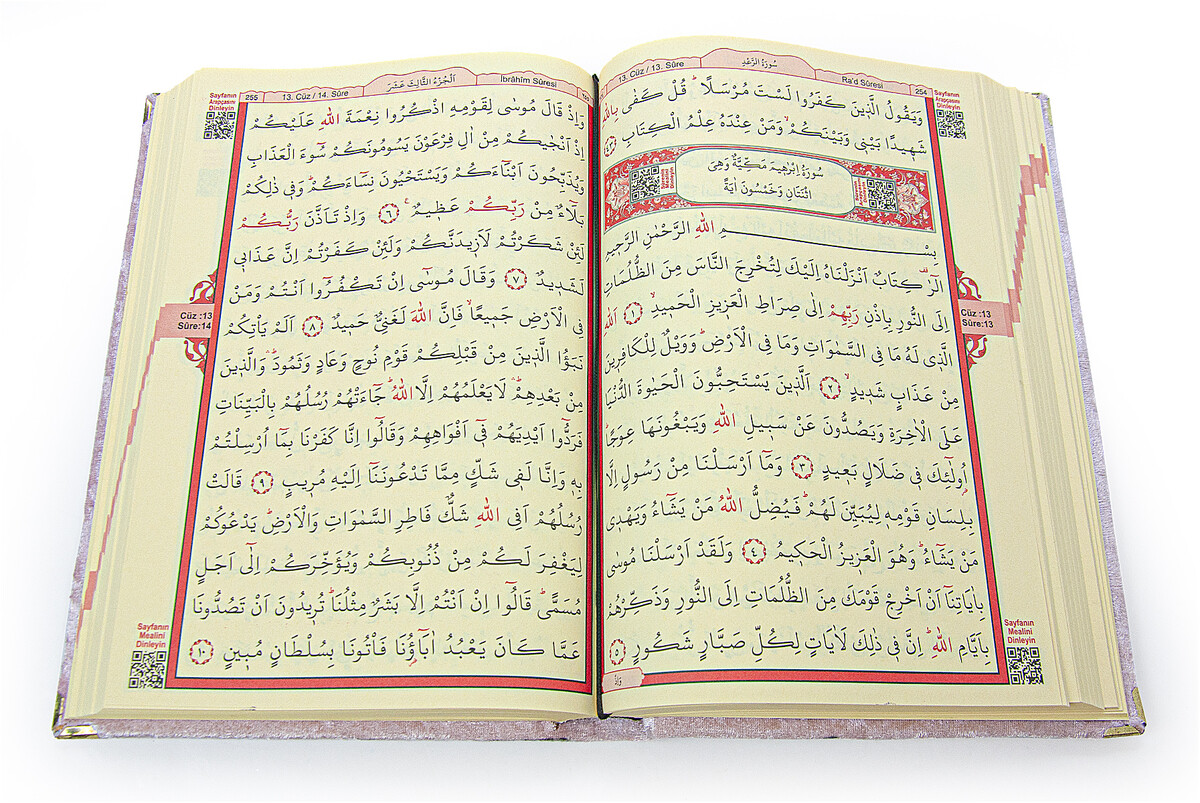 254
Ra'd Sûresi
سُورَةُ الرَّعْدِ
13. Cüz / 13. Sûre
Sayfanın
Arapçasını
Dinleyin
وَيَقُولُ الَّذ۪ينَ كَفَرُوا لَسْتَ مُرْسَلًاۜ قُلْ كَفٰى بِاللّٰهِ
شَه۪يدًا بَيْن۪ي وَبَيْنَكُمْۙ وَمَنْ عِنْدَهُ عِلْمُ الْكِتَابِ ﴿٤٣﴾
سُورَةُ اِبْرٰه۪يمَ مَكِّيَّةٌ وَهِيَ
اثْنَتَانِ وَخَمْسُونَ اٰيَةً
Sayfanın
Mealini
Dinleyin
بِسْـــــــمِ اللّٰهِ الرَّحْمٰنِ الرَّح۪يمِ
الٓرٰ۠ كِتَابٌ اَنْزَلْنَاهُ اِلَيْكَ لِتُخْرِجَ النَّاسَ مِنَ الظُّلُمَاتِ
اِلَى النُّورِ بِاِذْنِ رَبِّهِمْ اِلٰى صِرَاطِ الْعَز۪يزِ الْحَم۪يدِۙ ﴿١﴾ اَللّٰهِ
الَّذ۪ي لَهُ مَا فِي السَّمٰوَاتِ وَمَا فِي الْاَرْضِۜ وَوَيْلٌ لِلْكَافِر۪ينَ
مِنْ عَذَابٍ شَد۪يدٍۙ ﴿٢﴾ اَلَّذ۪ينَ يَسْتَحِبُّونَ الْحَيٰوةَ الدُّنْيَا
عَلَى الْاٰخِرَةِ وَيَصُدُّونَ عَنْ سَب۪يلِ اللّٰهِ وَيَبْغُونَهَا عِوَجًاۜ
اُو۬لٰٓئِكَ ف۪ي ضَلَالٍ بَع۪يدٍ ﴿٣﴾ وَمَٓا اَرْسَلْنَا مِنْ رَسُولٍ اِلَّا
بِلِسَانِ قَوْمِه۪ لِيُبَيِّنَ لَهُمْۜ فَيُضِلُّ اللّٰهُ مَنْ يَشَٓاءُ وَيَهْد۪ي
مَنْ يَشَٓاءُۜ وَهُوَ الْعَز۪يزُ الْحَك۪يمُ ﴿٤﴾ وَلَقَدْ اَرْسَلْنَا مُوسٰى
بِاٰيَاتِنَٓا اَنْ اَخْرِجْ قَوْمَكَ مِنَ الظُّلُمَاتِ اِلَى النُّورِ وَذَكِّرْهُمْ
بِاَيَّامِ اللّٰهِۜ اِنَّ ف۪ي ذٰلِكَ لَاٰيَاتٍ لِكُلِّ صَبَّارٍ شَكُورٍ ﴿٥﴾
وَاِذْ
Cüz :13
Sûre:13
Sayfanın
Mealini
Dinleyin
İbrâhîm Sûresi
اَلْجُزْءُ الثَّالِثَ عَشَرَ
13. Cüz / 14. Sûre
255
Sayfanın
Arapçasını
Dinleyin
وَاِذْ قَالَ مُوسٰى لِقَوْمِهِ اذْكُرُوا نِعْمَةَ اللّٰهِ عَلَيْكُمْ
اِذْ اَنْجٰيكُمْ مِنْ اٰلِ فِرْعَوْنَ يَسُومُونَكُمْ سُٓوءَ الْعَذَابِ
وَيُذَبِّحُونَ اَبْنَٓاءَكُمْ وَيَسْتَحْيُونَ نِسَٓاءَكُمْۜ وَف۪ي ذٰلِكُمْ
بَلَٓاءٌ مِنْ رَبِّكُمْ عَظ۪يمٌ۟ ﴿٦﴾ وَاِذْ تَاَذَّنَ رَبُّكُمْ
لَئِنْ شَكَرْتُمْ لَاَز۪يدَنَّكُمْ وَلَئِنْ كَفَرْتُمْ اِنَّ عَذَاب۪ي
لَشَد۪يدٌ ﴿٧﴾ وَقَالَ مُوسٰٓى اِنْ تَكْفُرُٓوا اَنْتُمْ وَمَنْ
فِي الْاَرْضِ جَم۪يعًاۙ فَاِنَّ اللّٰهَ لَغَنِيٌّ حَم۪يدٌ ﴿٨﴾ اَلَمْ يَأْتِكُمْ
نَبَؤُا الَّذ۪ينَ مِنْ قَبْلِكُمْ قَوْمِ نُوحٍ وَعَادٍ وَثَمُودَۜ وَالَّذ۪ينَ
مِنْ بَعْدِهِمْۜ لَا يَعْلَمُهُمْ اِلَّا اللّٰهُۜ جَٓاءَتْهُمْ رُسُلُهُمْ بِالْبَيِّنَاتِ
فَرَدُّٓوا اَيْدِيَهُمْ ف۪ٓي اَفْوَاهِهِمْ وَقَالُٓوا اِنَّا كَفَرْنَا بِمَٓا اُرْسِلْتُمْ
بِه۪ وَاِنَّا لَف۪ي شَكٍّ مِمَّا تَدْعُونَنَٓا اِلَيْهِ مُر۪يبٍ ﴿٩﴾ قَالَتْ
رُسُلُهُمْ اَفِي اللّٰهِ شَكٌّ فَاطِرِ السَّمٰوَاتِ وَالْاَرْضِۜ يَدْعُوكُمْ
لِيَغْفِرَ لَكُمْ مِنْ ذُنُوبِكُمْ وَيُؤَخِّرَكُمْ اِلٰٓى اَجَلٍ
مُسَمًّىۜ قَالُٓوا اِنْ اَنْتُمْ اِلَّا بَشَرٌ مِثْلُنَاۜ تُر۪يدُونَ اَنْ تَصُدُّونَا
عَمَّا كَانَ يَعْبُدُ اٰبَٓاؤُ۬نَا فَأْتُونَا بِسُلْطَانٍ مُب۪ينٍ ﴿١٠﴾
Cüz :13
Sûre:14
Sayfanın
Mealini
Dinleyin